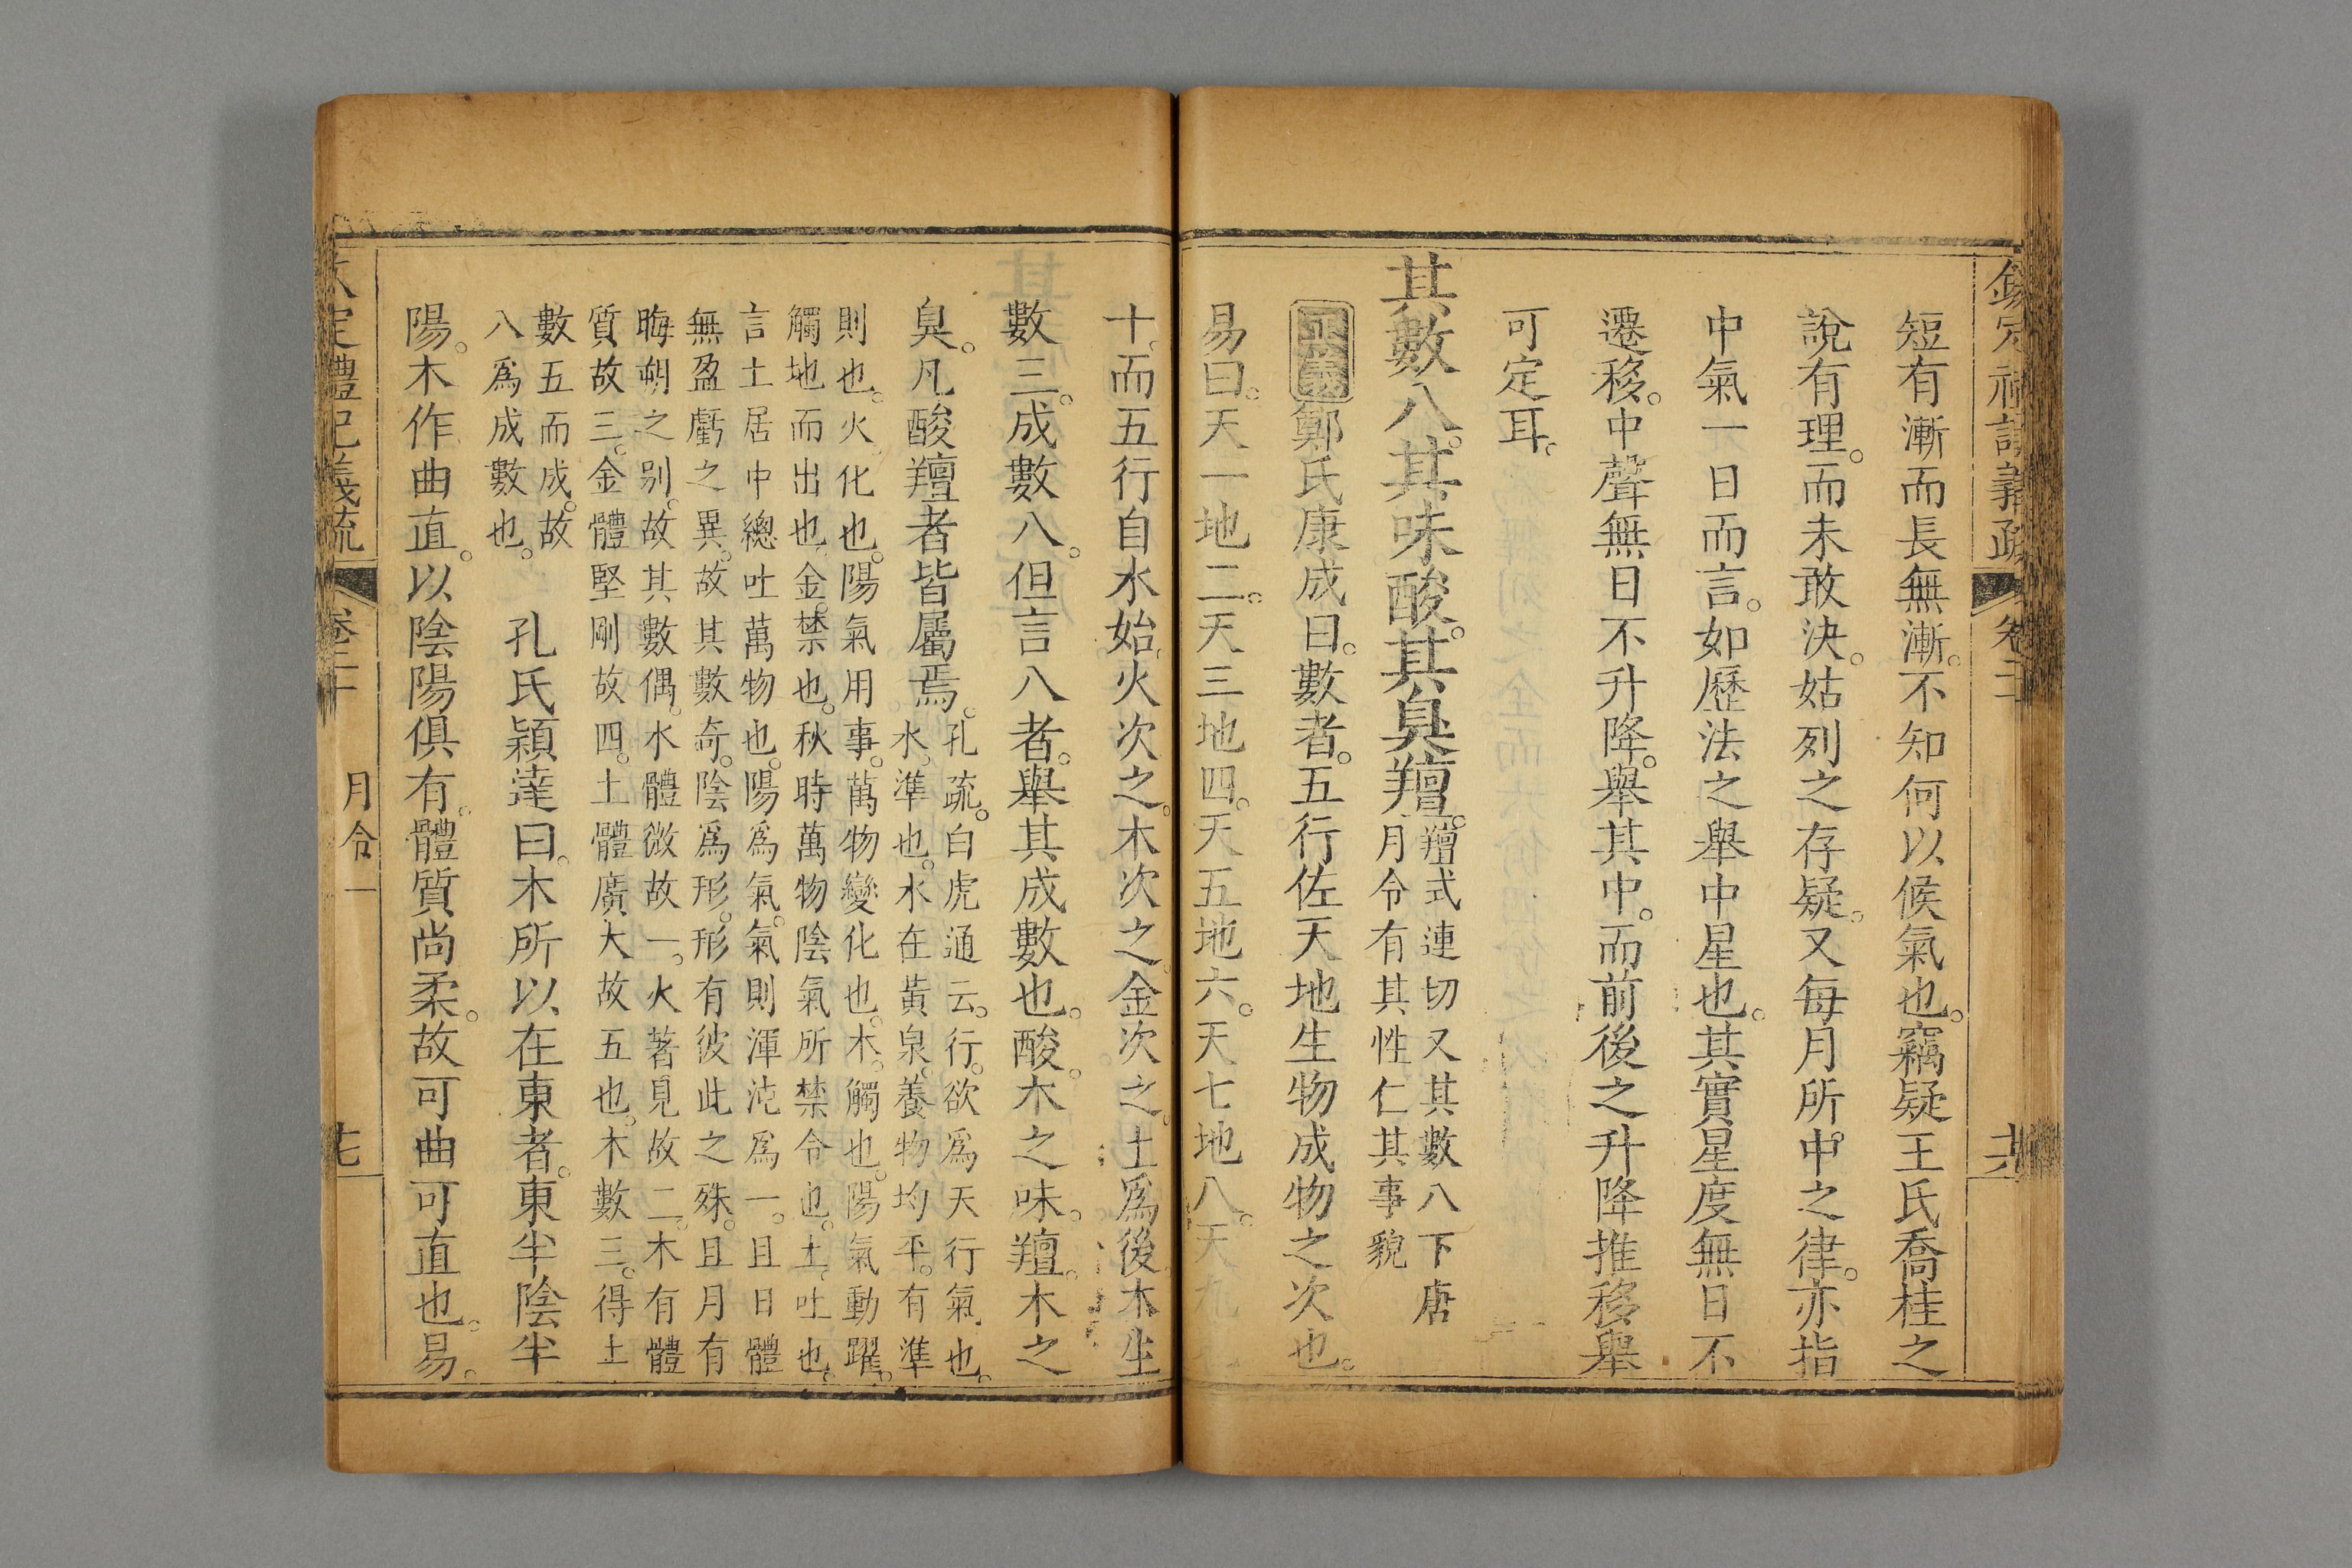 欽定禮記義疏 卷二十
短有漸而長無漸。不知何以候氣也。竊疑王氏喬桂之
說有理。而未敢決。姑列之存疑。又每月所中之律。亦指
中氣一日而言。如歷法之舉中星也。其實星度無日不
遷移。中聲無日不升降。舉其中。而前後之升降推移舉
可定耳。
其數八。其味酸。其臭羶。
羶式連切又其數八下唐
月令有其性仁其事貌
正義鄭氏康成曰。數者。五行佐天地生物成物之次也。
易曰。天一地二。天三地四。天五地六。天七地八。天九地
十。而五行自水始。火次之。木次之。金次之。土爲後。木生
數三。成數八。但言八者。舉其成數也。酸。木之味。羶。木之
臭。凡酸羶者皆屬焉。
孔疏。白虎通云。行。欲爲天行氣也。
水。準也。水在黃泉。養物均平。有準
則也。火化也。陽氣用事。萬物變化也。木。觸也。陽氣動躍。
觸地而出也。金。禁也。秋時萬物陰氣所禁令也。土。吐也。
言土居中總吐萬物也。陽爲氣。氣則渾沌爲一。且日體
無盈虧之異。故其數奇。陰爲形。形有彼此之殊。且月有
晦朔之别。故其數偶。水體微故一。火著見故二。木有體
質故三。金體堅剛故四。土體廣大故五也。木數三。得土
數五而成。故
八爲成數也。
孔氏穎達曰。木所以在東者。東半陰半
陽。木作曲直。以陰陽俱有。體質尚柔。故可曲可直也。易。
欽定禮記義疏 卷二十 月令一 七